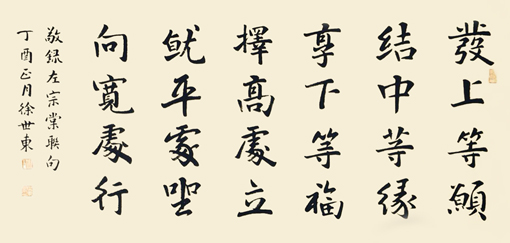 發上等願
結中等緣
享下等福
擇高處立
就平處坐
向寬處行
敬録左宗棠聯句
丁酉正月徐世東